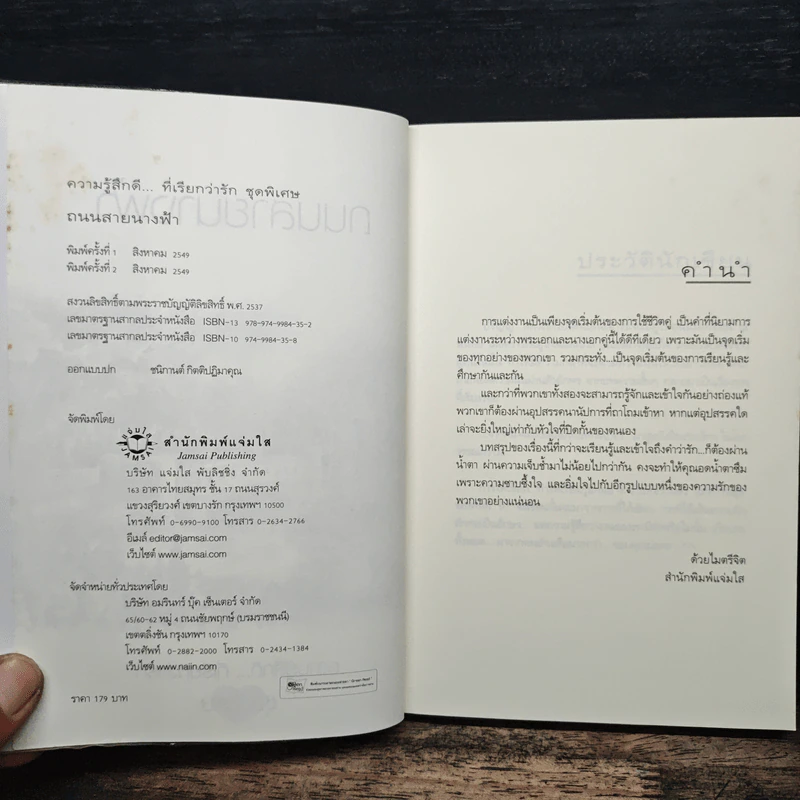 ความรู้สึกดี... ที่เรียกว่ารัก ชุดพิเศษ
ถนนสายนางฟ้า
พิมพ์ครั้งที่ 1 สิงหาคม 2549
พิมพ์ครั้งที่ 2 สิงหาคม 2549
สงวนลิขสิทธิ์ตามพระราชบัญญัติลิขสิทธิ์ พ.ศ. 2537
เลขมาตรฐานสากลประจำหนังสือ ISBN-13 978-974-9984-35-2
เลขมาตรฐานสากลประจำหนังสือ ISBN-10 974-9984-35-8
ออกแบบปก ชนิกานต์ กิตติปฎิมาคุณ
จัดพิมพ์โดย
แจ่มใส JAMSAI
สำนักพิมพ์แจ่มใส
Jamsai Publishing
บริษัท แจ่มใส พับลิชชิ่ง จำกัด
163 อาคารไทยสมุทร ชั้น 17 ถนนสุรวงศ์
แขวงสุริยวงศ์ เขตบางรัก กรุงเทพฯ 10500
โทรศัพท์ 0-6990-9100 โทรสาร 0-2634-2766
อีเมล์ editor@jamsai.com
เว็บไซต์ www.jamsai.com
จัดจำหน่ายทั่วประเทศโดย
บริษัท อมรินทร์ บุ๊ค เซ็นเตอร์ จำกัด
65/60-62 หมู่ 4 ถนนชัยพฤกษ์ (บรมราชชนนี)
เขตตลิ่งชัน กรุงเทพฯ 10170
โทรศัพท์ 0-2882-2000 โทรสาร 0-2434-1384
เว็บไซต์ www.naiin.com
ราคา 179 บาท
คำนำ
การแต่งงานเป็นเพียงจุดเริ่มต้นของการใช้ชีวิตคู่ เป็นคำที่นิยามการ
แต่งงานระหว่างพระเอกและนางเอกคู่นี้ได้ดีทีเดียว เพราะมันเป็นจุดเริ่ม
ของทุกอย่างของพวกเขา รวมกระทั่ง...เป็นจุดเริ่มต้นของการเรียนรู้และ
ศึกษากันและกัน
และกว่าที่พวกเขาทั้งสองจะสามารถรู้จักและเข้าใจกันอย่างถ่องแท้
พวกเขาก็ต้องผ่านอุปสรรคนานัปการที่ถาโถมเข้าหา หากแต่อุปสรรคใด
เล่าจะยิ่งใหญ่เท่ากับหัวใจที่ปิดกั้นของตนเอง
บทสรุปของเรื่องนี้ที่กว่าจะเรียนรู้และเข้าใจถึงคำว่ารัก...ก็ต้องผ่าน
น้ำตา ผ่านความเจ็บช้ำมาไม่น้อยไปกว่ากัน คงจะทำให้คุณอดน้ำตาซึม
เพราะความซาบซึ้งใจ และอิ่มใจไปกับอีกรูปแบบหนึ่งของความรักของ
พวกเขาอย่างแน่นอน
ด้วยไมตรีจิต
สำนักพิมพ์แจ่มใส